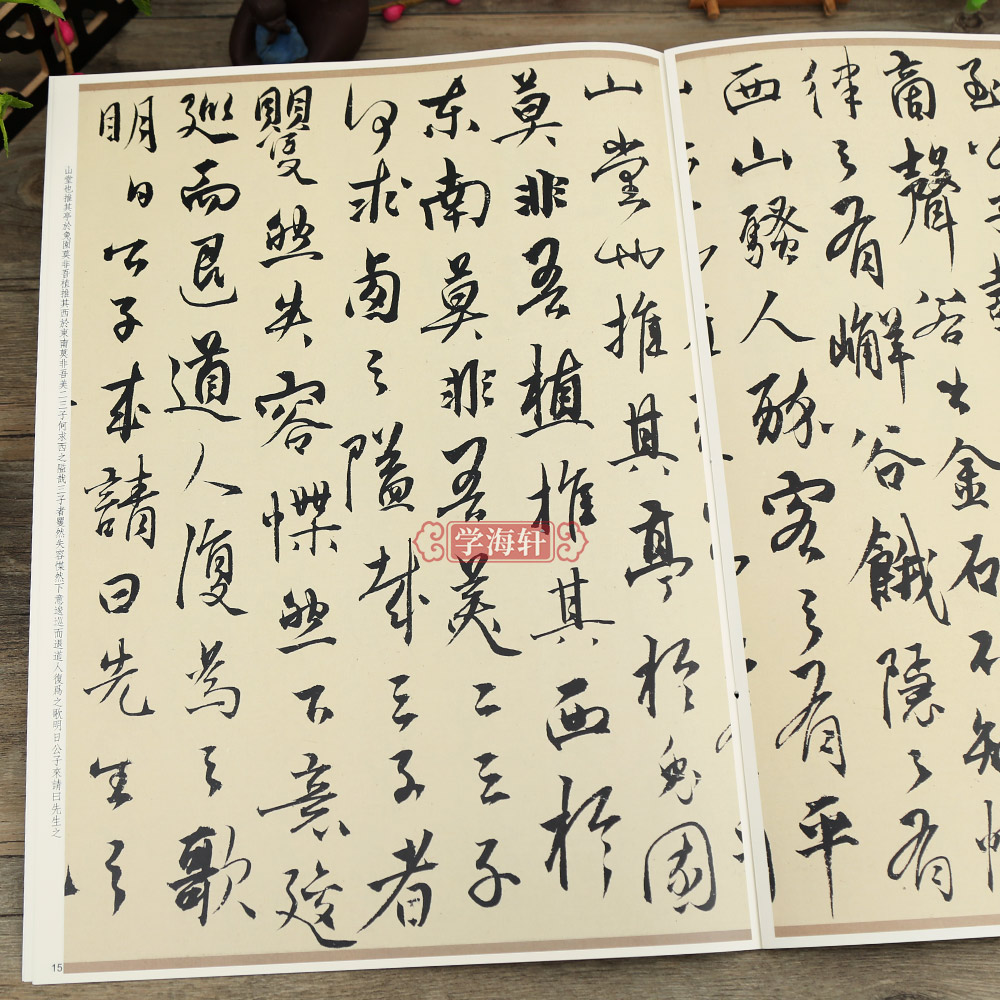 商聲谷出金石
律之有嶰谷餓隱之有
西山騷人醉客之有平
山堂也推其亭於兔園
莫非吾植推其西於
東南莫非吾美二三子
何求鹵之隘哉三子者
矍然失容惵然下意逡
巡而退道人復為之歌
明日公子來請曰先生之
山堂也推其亭於兔園莫非吾植推其西於東南莫非吾美二三子何求西之隘哉三子者矍然失容惵然下意逡巡而退道人復爲之歌明日公子來請曰先生之
15
学海轩